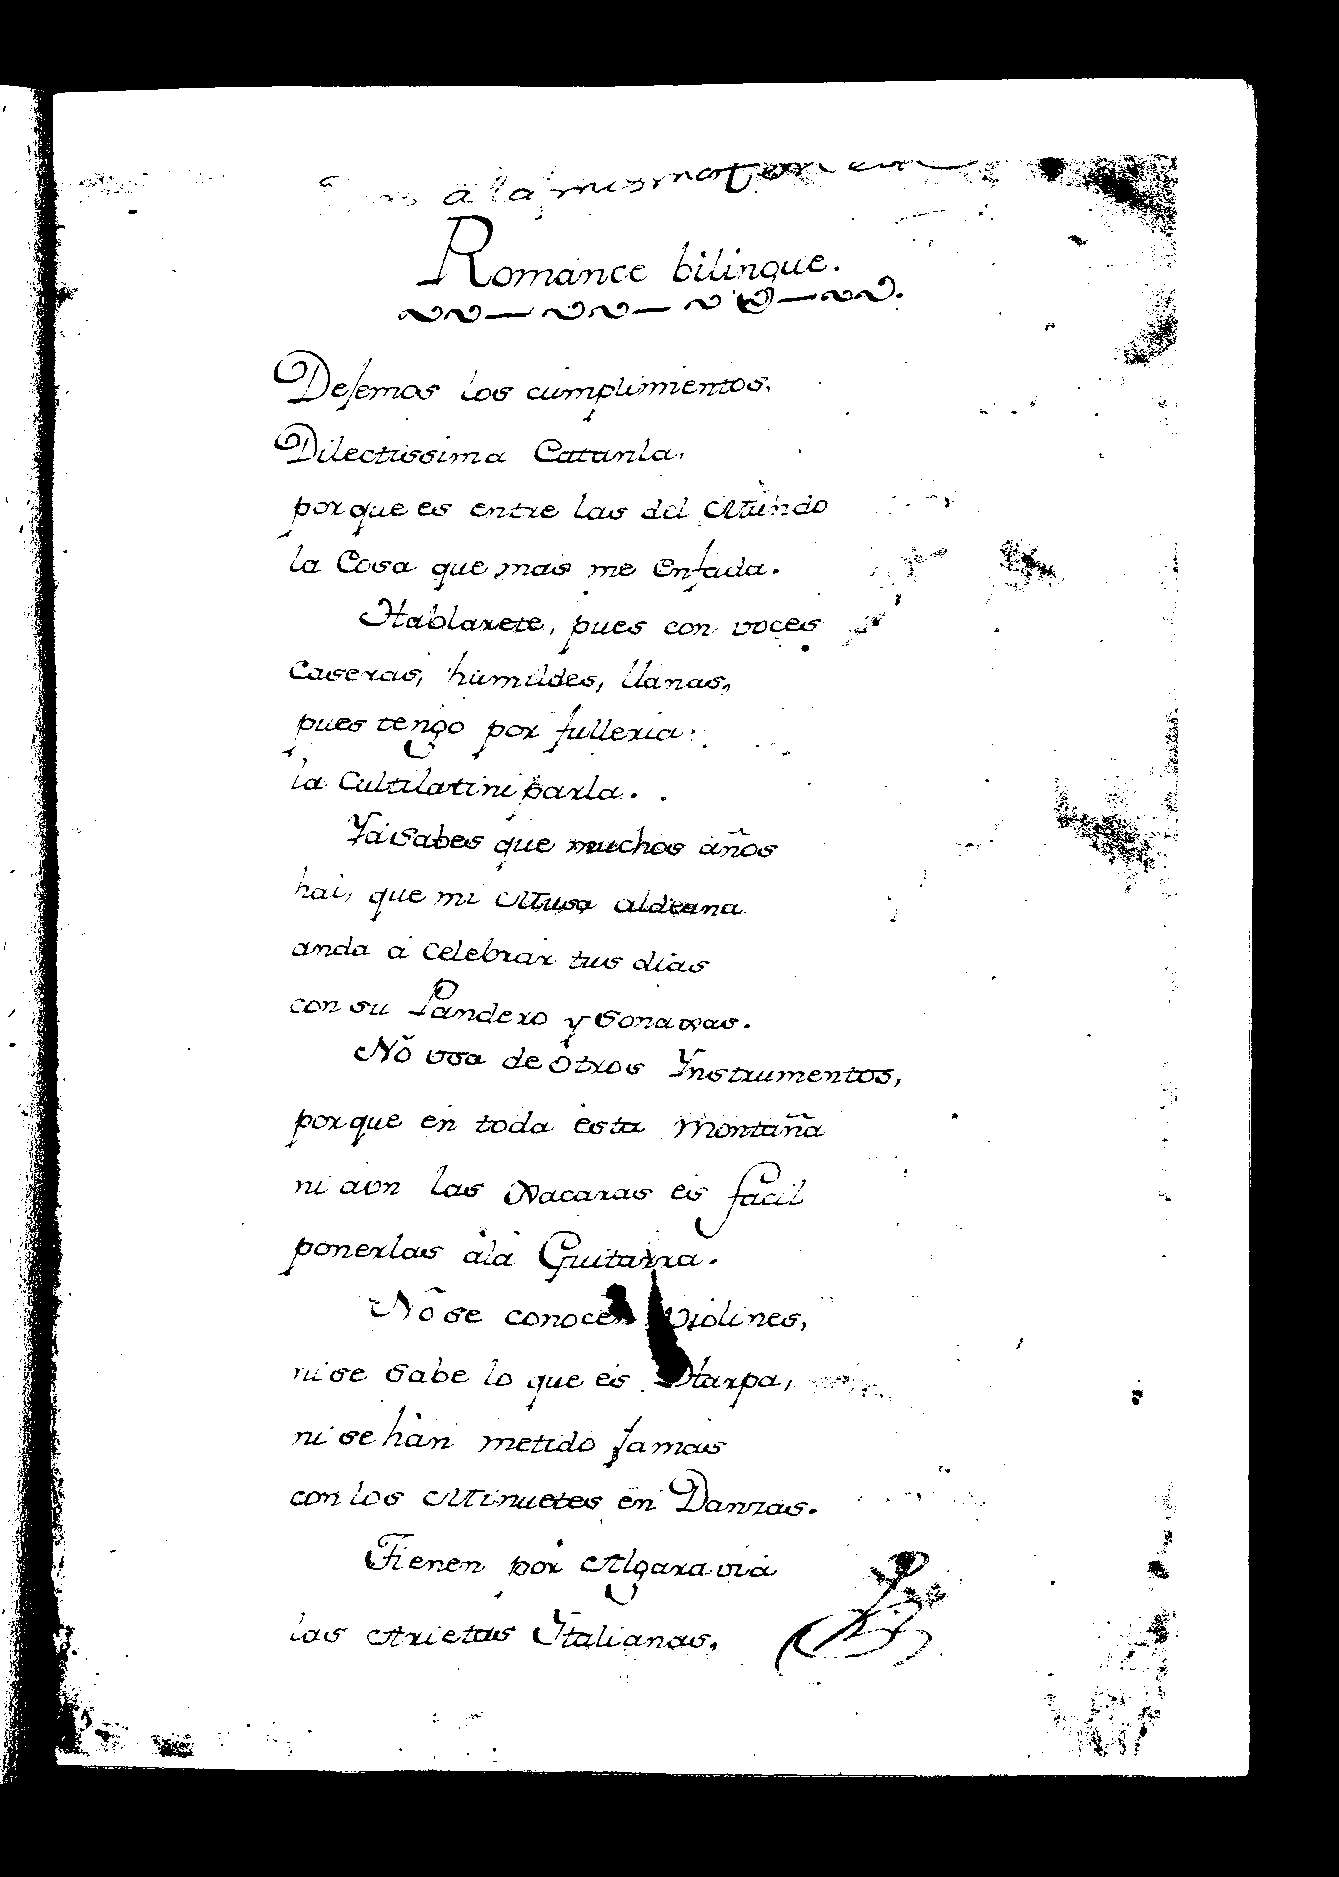 a la misma
Romance bilingue.
Dejemos los cumplimientos,
Dilectissima Catanla,
porque es entre las del Mundo
la Cosa que mas me enfada.
Hablarete, pues con voces
caseras, humildes, llanas,
pues tengo por fulleria
la cultilatini parla.
Yá sabes que muchos años
hai, que mi Musa aldeana
anda á celebrar tus dias
con su Pandero y Sonaxas.
Nó usa de ótros Ynstrumentos,
porque en toda ésta Montaña
ni aun las Xacaras és facil
ponerlas álá Guitarra.
Nó se conocen Violines,
ni se sabe lo que és Harpa,
ni se hàn metido jamas
con los Minuetes én Danzas.
Tienen por Algaravia
las Arietas Ytalianas,